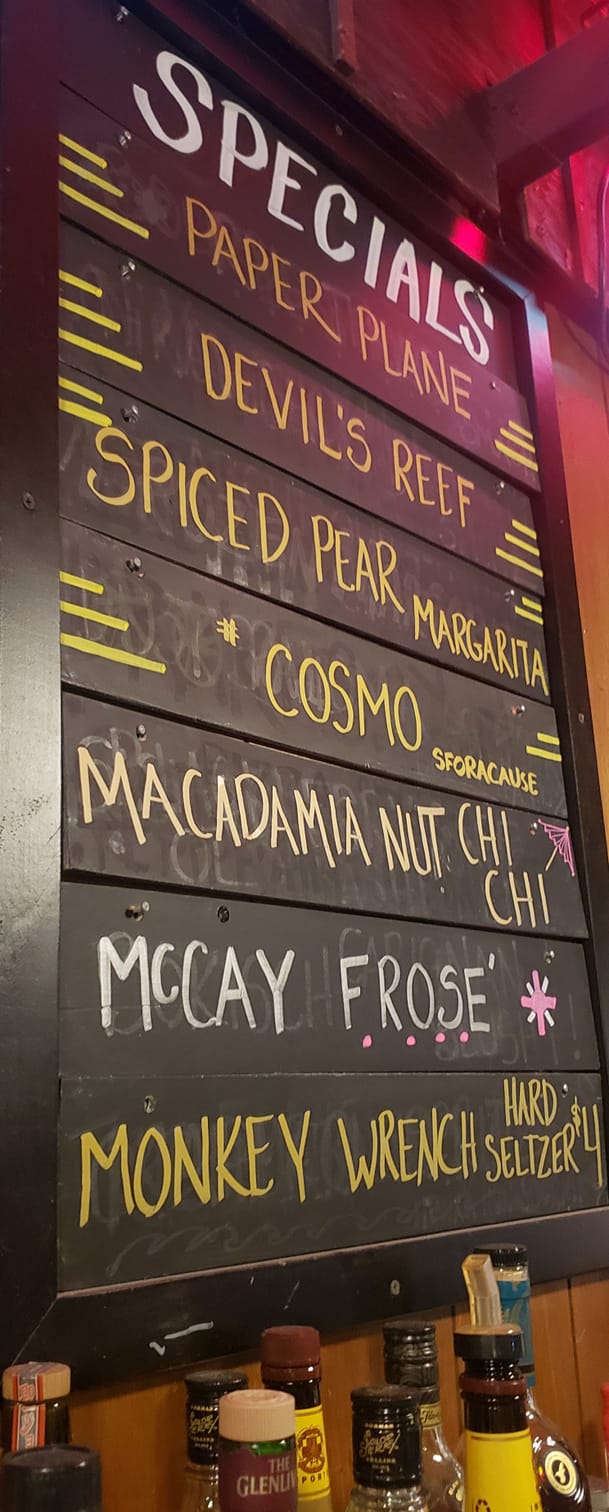 SPECIALS
PAPER PLANE
DEVIL'S REEF
SPICED PEAR MARGARITA
# COSMO SFORACAUSE
MACADAMIA NUT CHI
CHI
McCAY FROSE´
MONKEY WRENCH HARD
SELTZER $4
THE
GLENLIV
PORT